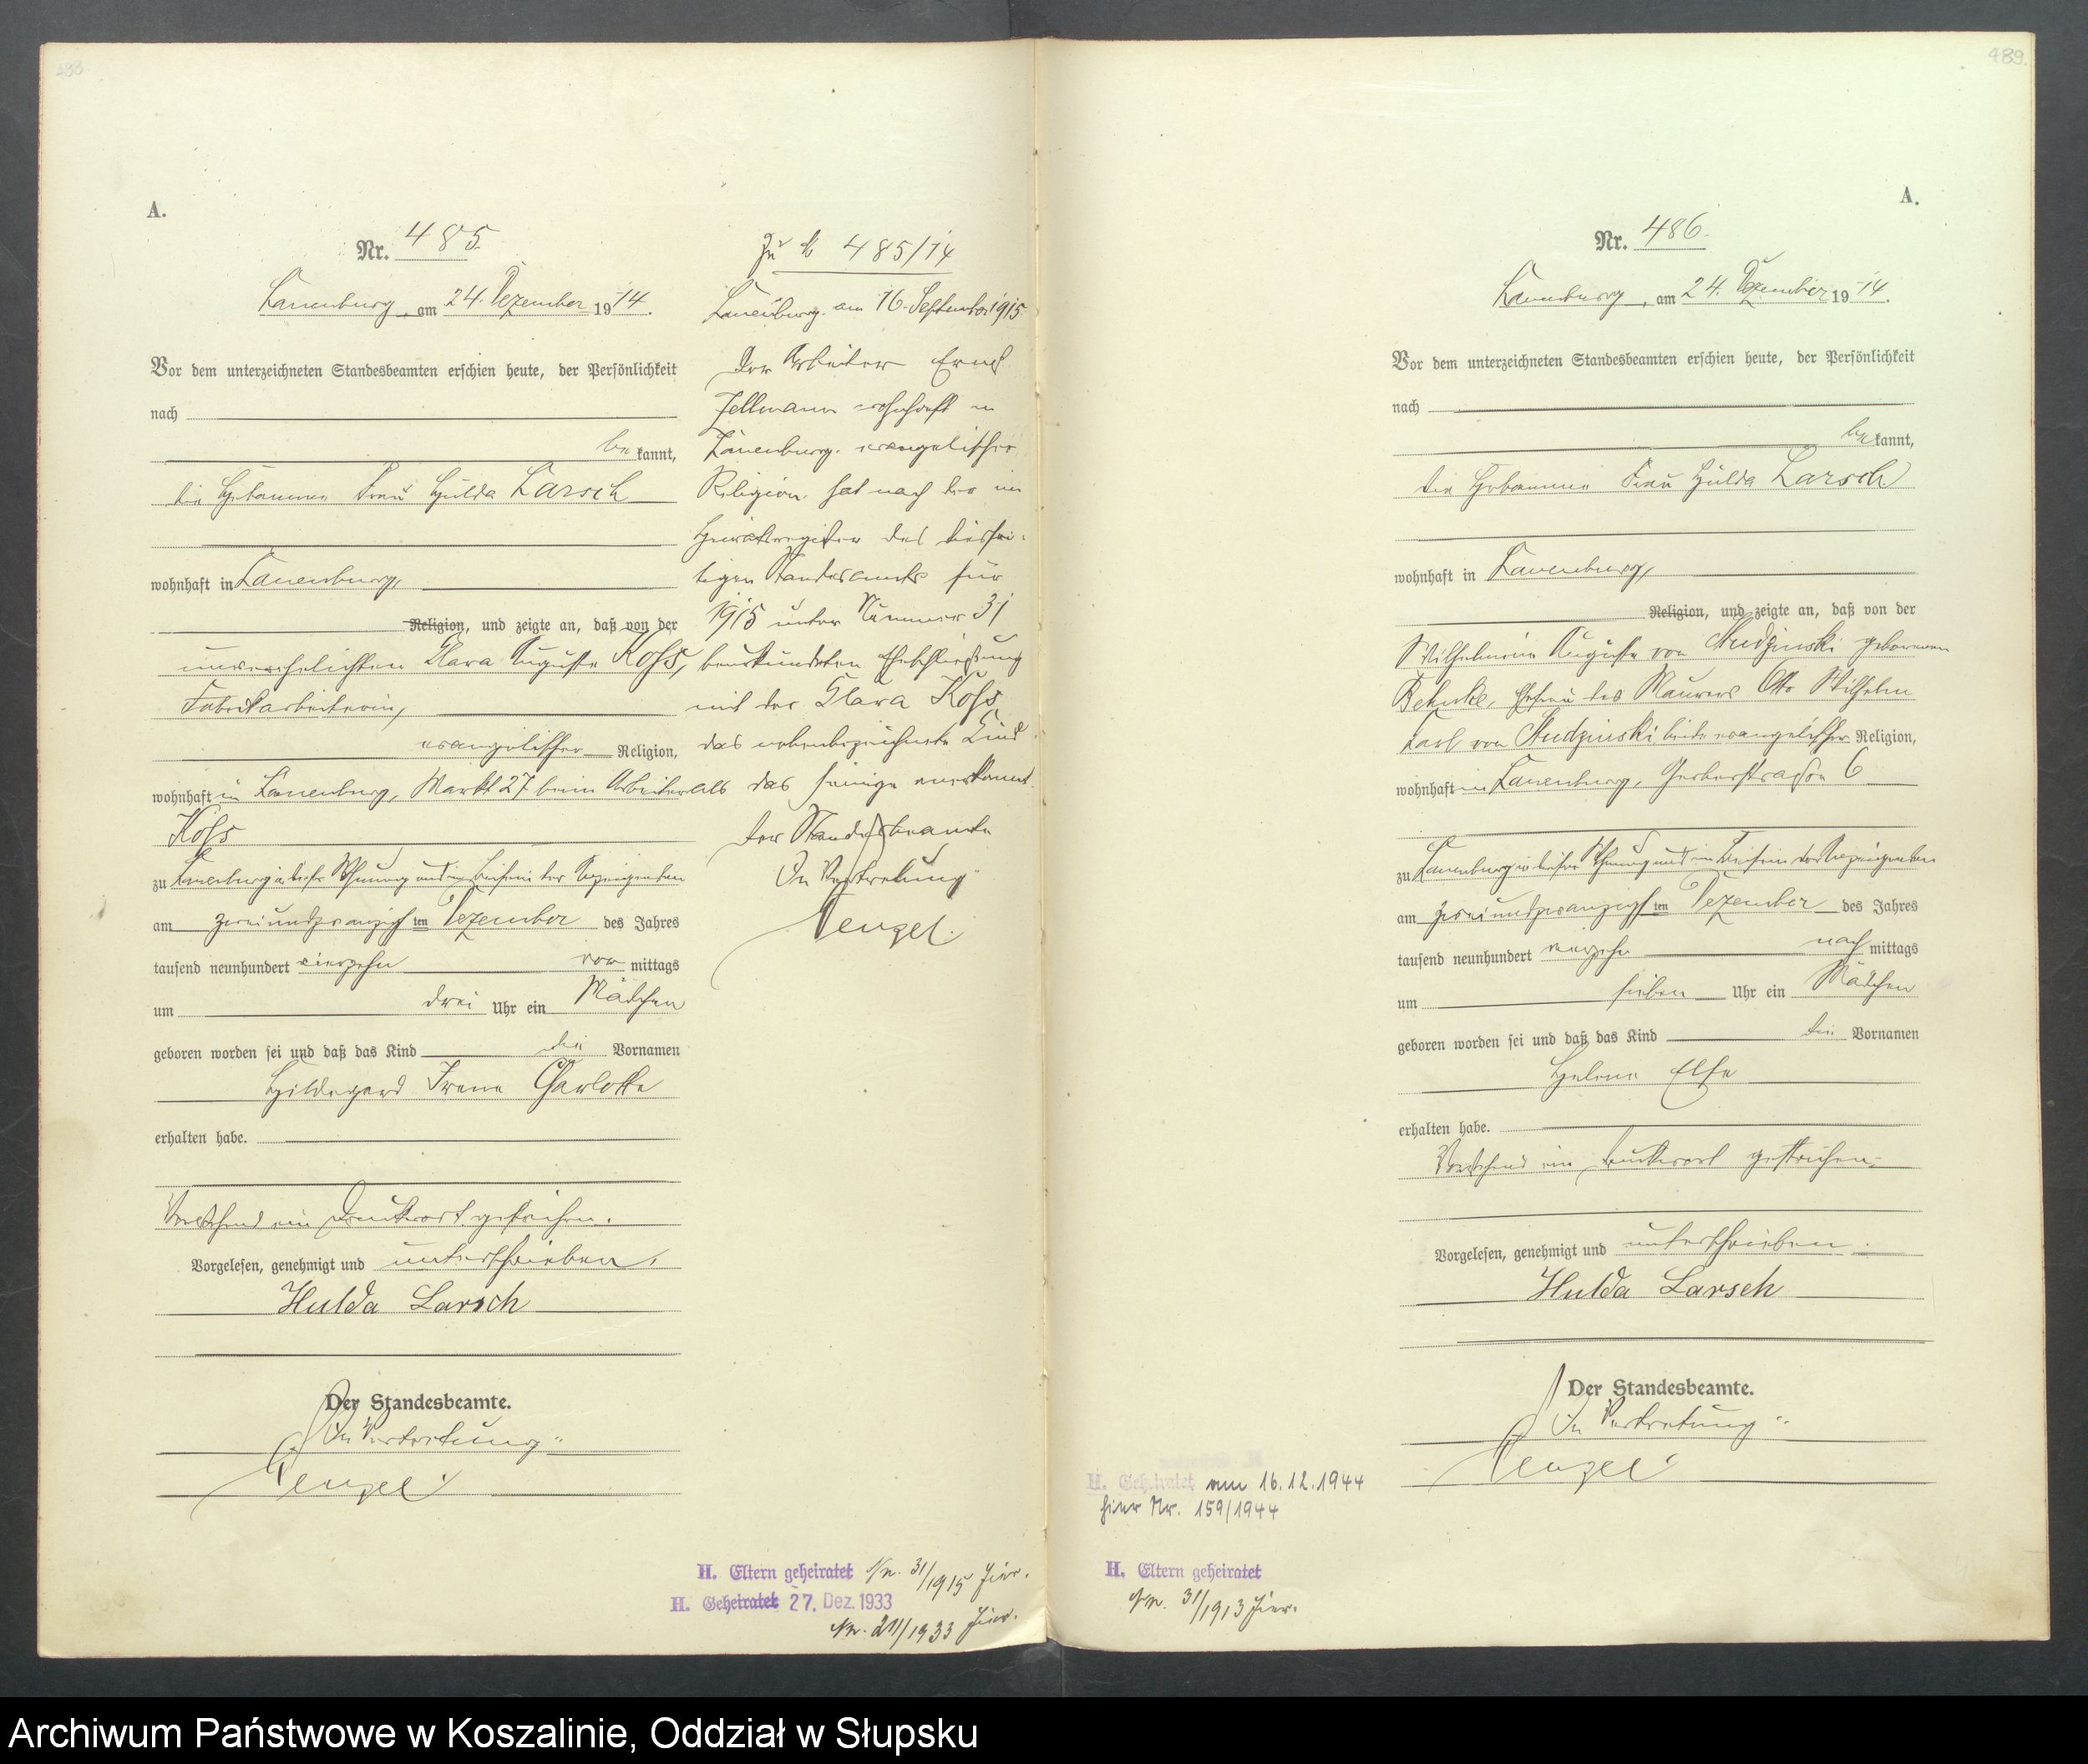 488
A.
Nr. 485.
Lauenburg, am 24. Dezember 1914.
Vor dem unterzeichneten Standesbeamten erschien heute, der Persönlichkeit
nach
bekannt,
die Hebamme Frau Hulda Larsch
wohnhaft in Lauenburg,
Religion, und zeigte an, daß von der
unverehelichten Clara Auguste Koss,
Fabrikarbeiterin,
evangelischer Religion,
wohnhaft in Lauenburg, Markt 27 beim Arbeiter
Koss
zu Lauenburg in dieser Wohnung und im Beisein der Anzeigenden
am zweiundzwanzigsten Dezember des Jahres
tausend neunhundert vierzehn vormittags
um drei Uhr ein Mädchen
geboren worden sei und daß das Kind die Vornamen
Hildegard Irene Charlotte
erhalten habe.
Vorstehend ein Druckwort gestrichen.
Vorgelesen, genehmigt und unterschrieben.
Hulda Larsch
Der Standesbeamte.
In Vertretung
Zu № 485/14
Lauenburg am 16. September 1915
Der Arbeiter
wohnhaft in
Lauenburg, evangelischer
Religion, hat nach der im
Heiratsregister des diesei-
tigen Standesamts für
1915 unter Nummer 31
beurkundeten Eheschließung
mit der Clara Koss
das nebenbezeichnete Kind
als das seinige anerkannt.
Der Standesbeamte
In Vertretung
H. Eltern geheiratet Nr. 31/1915 hier.
H. Geheiratet 27. Dez. 1933
Nr. 211/1933 hier.
489.
A.
Nr. 486.
Lauenburg, am 24. Dezember 1914.
Vor dem unterzeichneten Standesbeamten erschien heute, der Persönlichkeit
nach
bekannt,
die Hebamme Frau Hulda Larsch
wohnhaft in Lauenburg,
Religion, und zeigte an, daß von der
Wilhelmine Auguste von Studzinski geborenen
Behnke, Ehefrau des Maurers Otto Wilhelm
Karl von Studzinski beide evangelischer Religion,
wohnhaft in Lauenburg, Gerberstrasse 6
zu Lauenburg in dieser Wohnung und im Beisein der Anzeigenden
am zweiundzwanzigsten Dezember des Jahres
tausend neunhundert vierzehn nachmittags
um sieben Uhr ein Mädchen
geboren worden sei und daß das Kind die Vornamen
Helene Else
erhalten habe.
Vorstehend ein Druckwort gestrichen.
Vorgelesen, genehmigt und unterschrieben.
Hulda Larsch
Der Standesbeamte.
In Vertretung
H. Geheiratet am 16.12.1944
hier Nr. 159/1944
H. Eltern geheiratet
Nr. 31/1913 hier.
Archiwum Państwowe w Koszalinie, Oddział w Słupsku